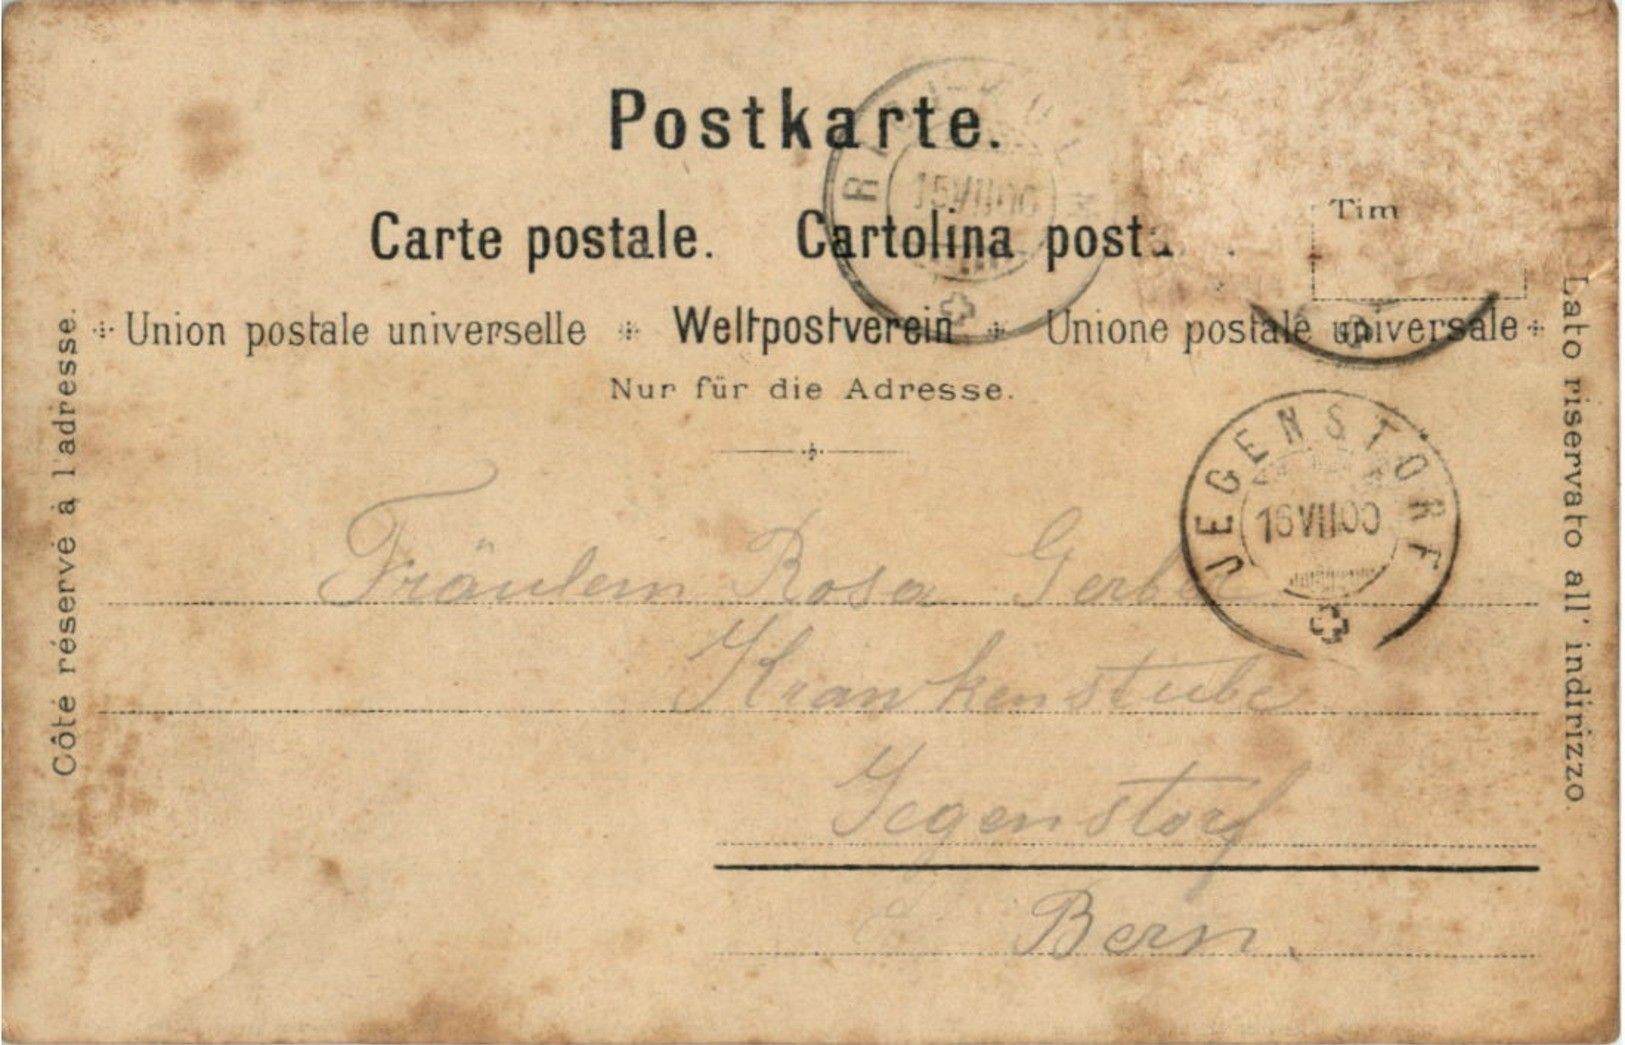 Postkarte.
Carte postale. Cartolina posta
Tim
Union postale universelle Weltpostverein Unione postale universale
Nur für die Adresse.
Côté réservé à l'adresse.
Lato riservato all' indirizzo.
15 VII 00
JEGENSTORF
16 VII 00
Fräulein Rosa Gerber
Krankenstube
Jegenstorf
Bern.